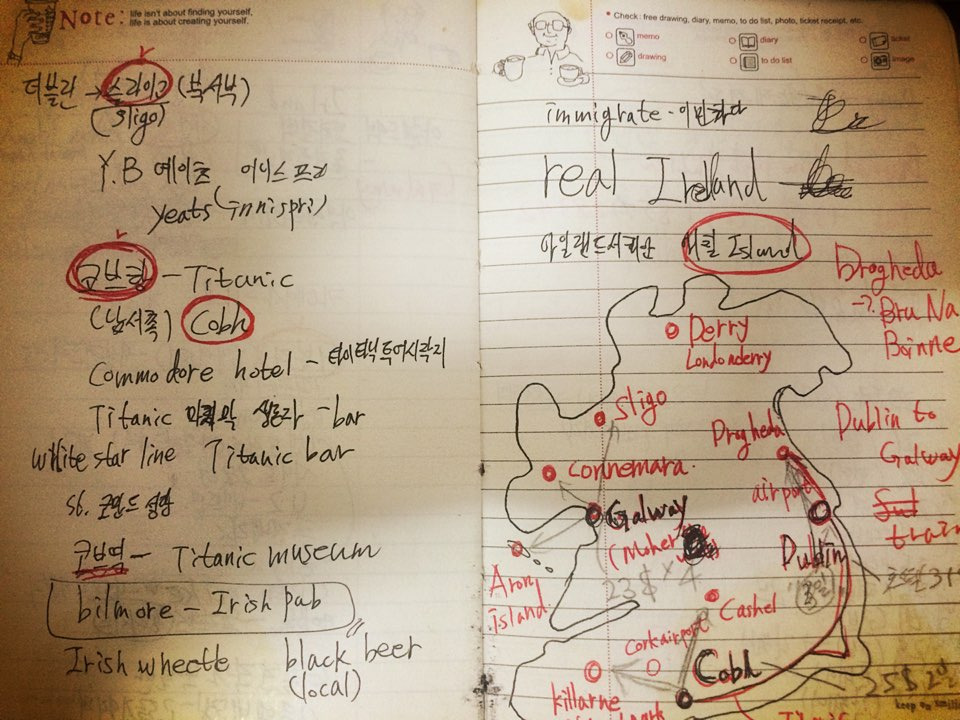 Note:
life isn't about finding yourself,
life is about creating yourself.
더블린 → 슬라이고 (북서부)
(Sligo)
Y.B 예이츠 이니스프리
Yeats (innispri)
코브항 - Titanic
(남서쪽) Cobh
Commodore hotel -
Titanic 마지막 생존자 - bar
white star line Titanic bar
St. 콜만드 성당
코브역 - Titanic museum
bilmore - Irish pub
Irish wheetle black beer
(local)
* Check : free drawing, diary, memo, to do list, photo, ticket receipt, etc.
memo
diary
ticket
drawing
to do list
image
immigrate - 이민하다
real Ireland
아일랜드 서쪽산 Island
Drogheda
→ Bru Na
Boinne
Derry
Londonderry
Sligo
Drogheda
Dublin to
Galway
train
Connemara.
airport
Galway
(Moher
Dublin
Arong
island
23$ × 4
Cashel
Cork airport
Cobh
killarne
keep on smili